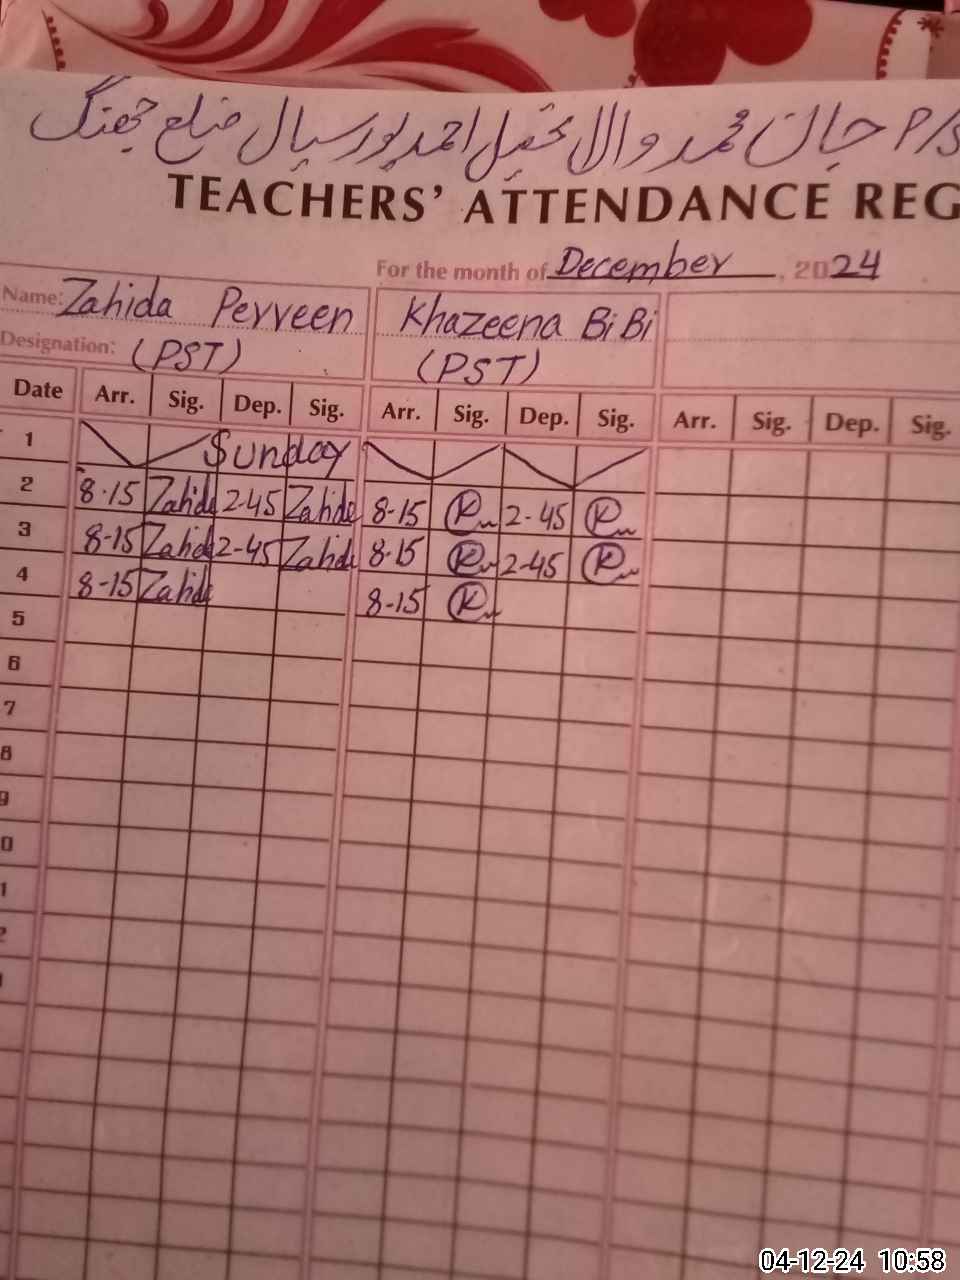 P/S جان محمد والا تحصیل احمد پور سیال ضلع جھنگ
TEACHERS' ATTENDANCE REG
For the month of December, 2024
Name: Zahida Perveen Khazeena BiBi
Designation: (PST) (PST)
Date Arr. Sig. Dep. Sig. Arr. Sig. Dep. Sig. Arr. Sig. Dep. Sig.
1 Sunday
2 8-15 Zahida 2-45 Zahida 8-15 K 2-45 K
3 8-15 Zahida 2-45 Zahida 8-15 K 2-45 K
4 8-15 Zahida 8-15 K
5
6
7
8
9
0
1
2
04-12-24 10:58